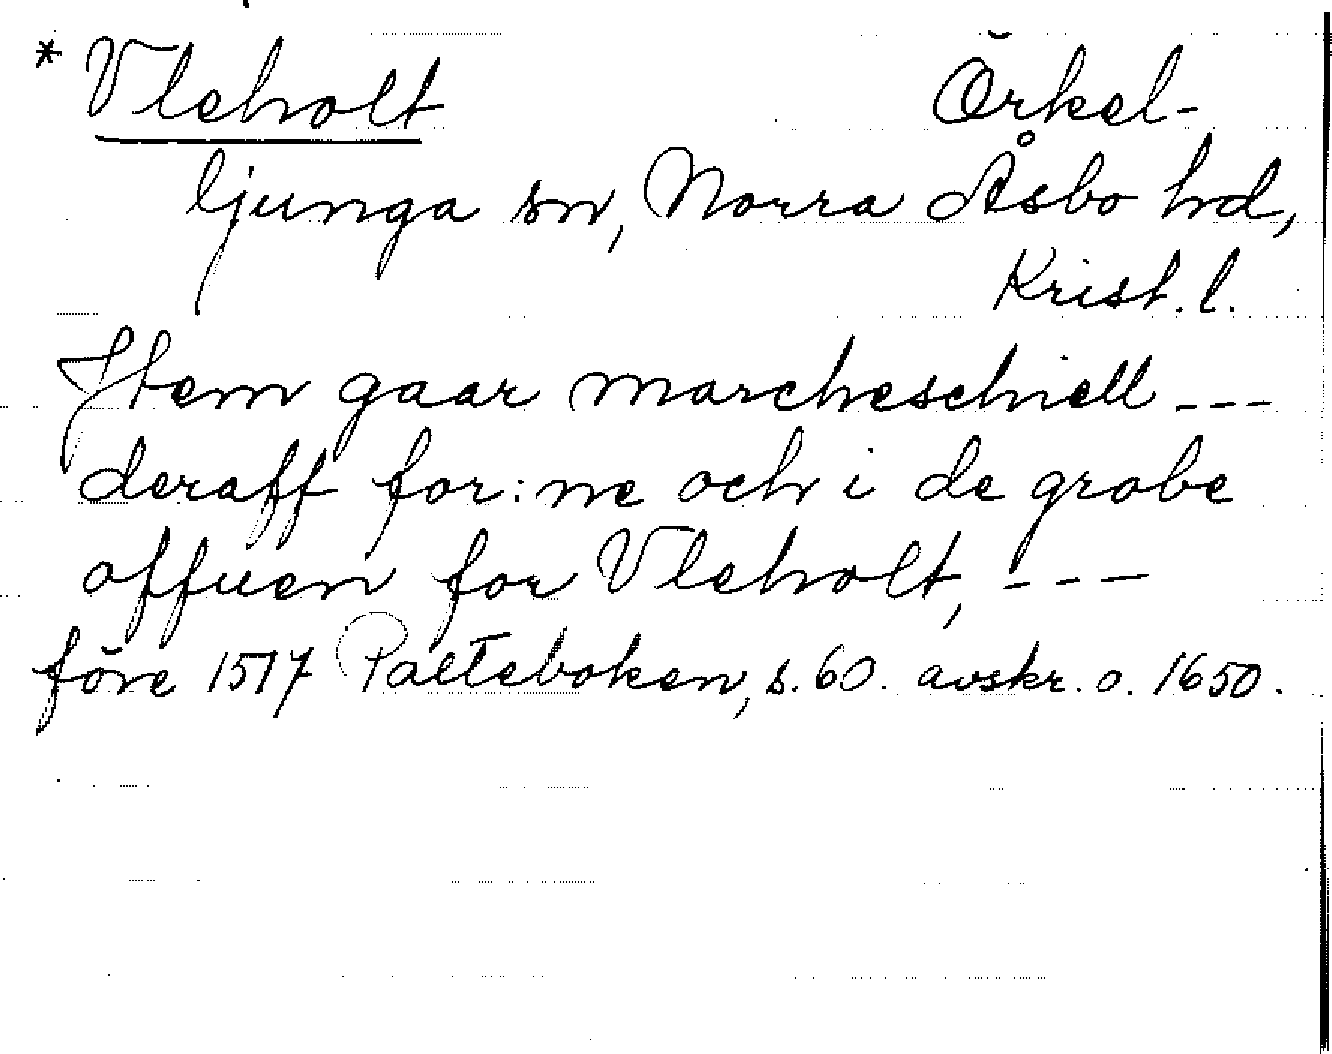 * Vleholt Örkel-
ljunga sn, Norra Åsbo hd,
Krist. l.
Item gaar marcheschiell ---
deraff for:ne och i de grobe
offuen for Vleholt, ---
före 1517 Palteboken, s. 60. avskr. o. 1650.